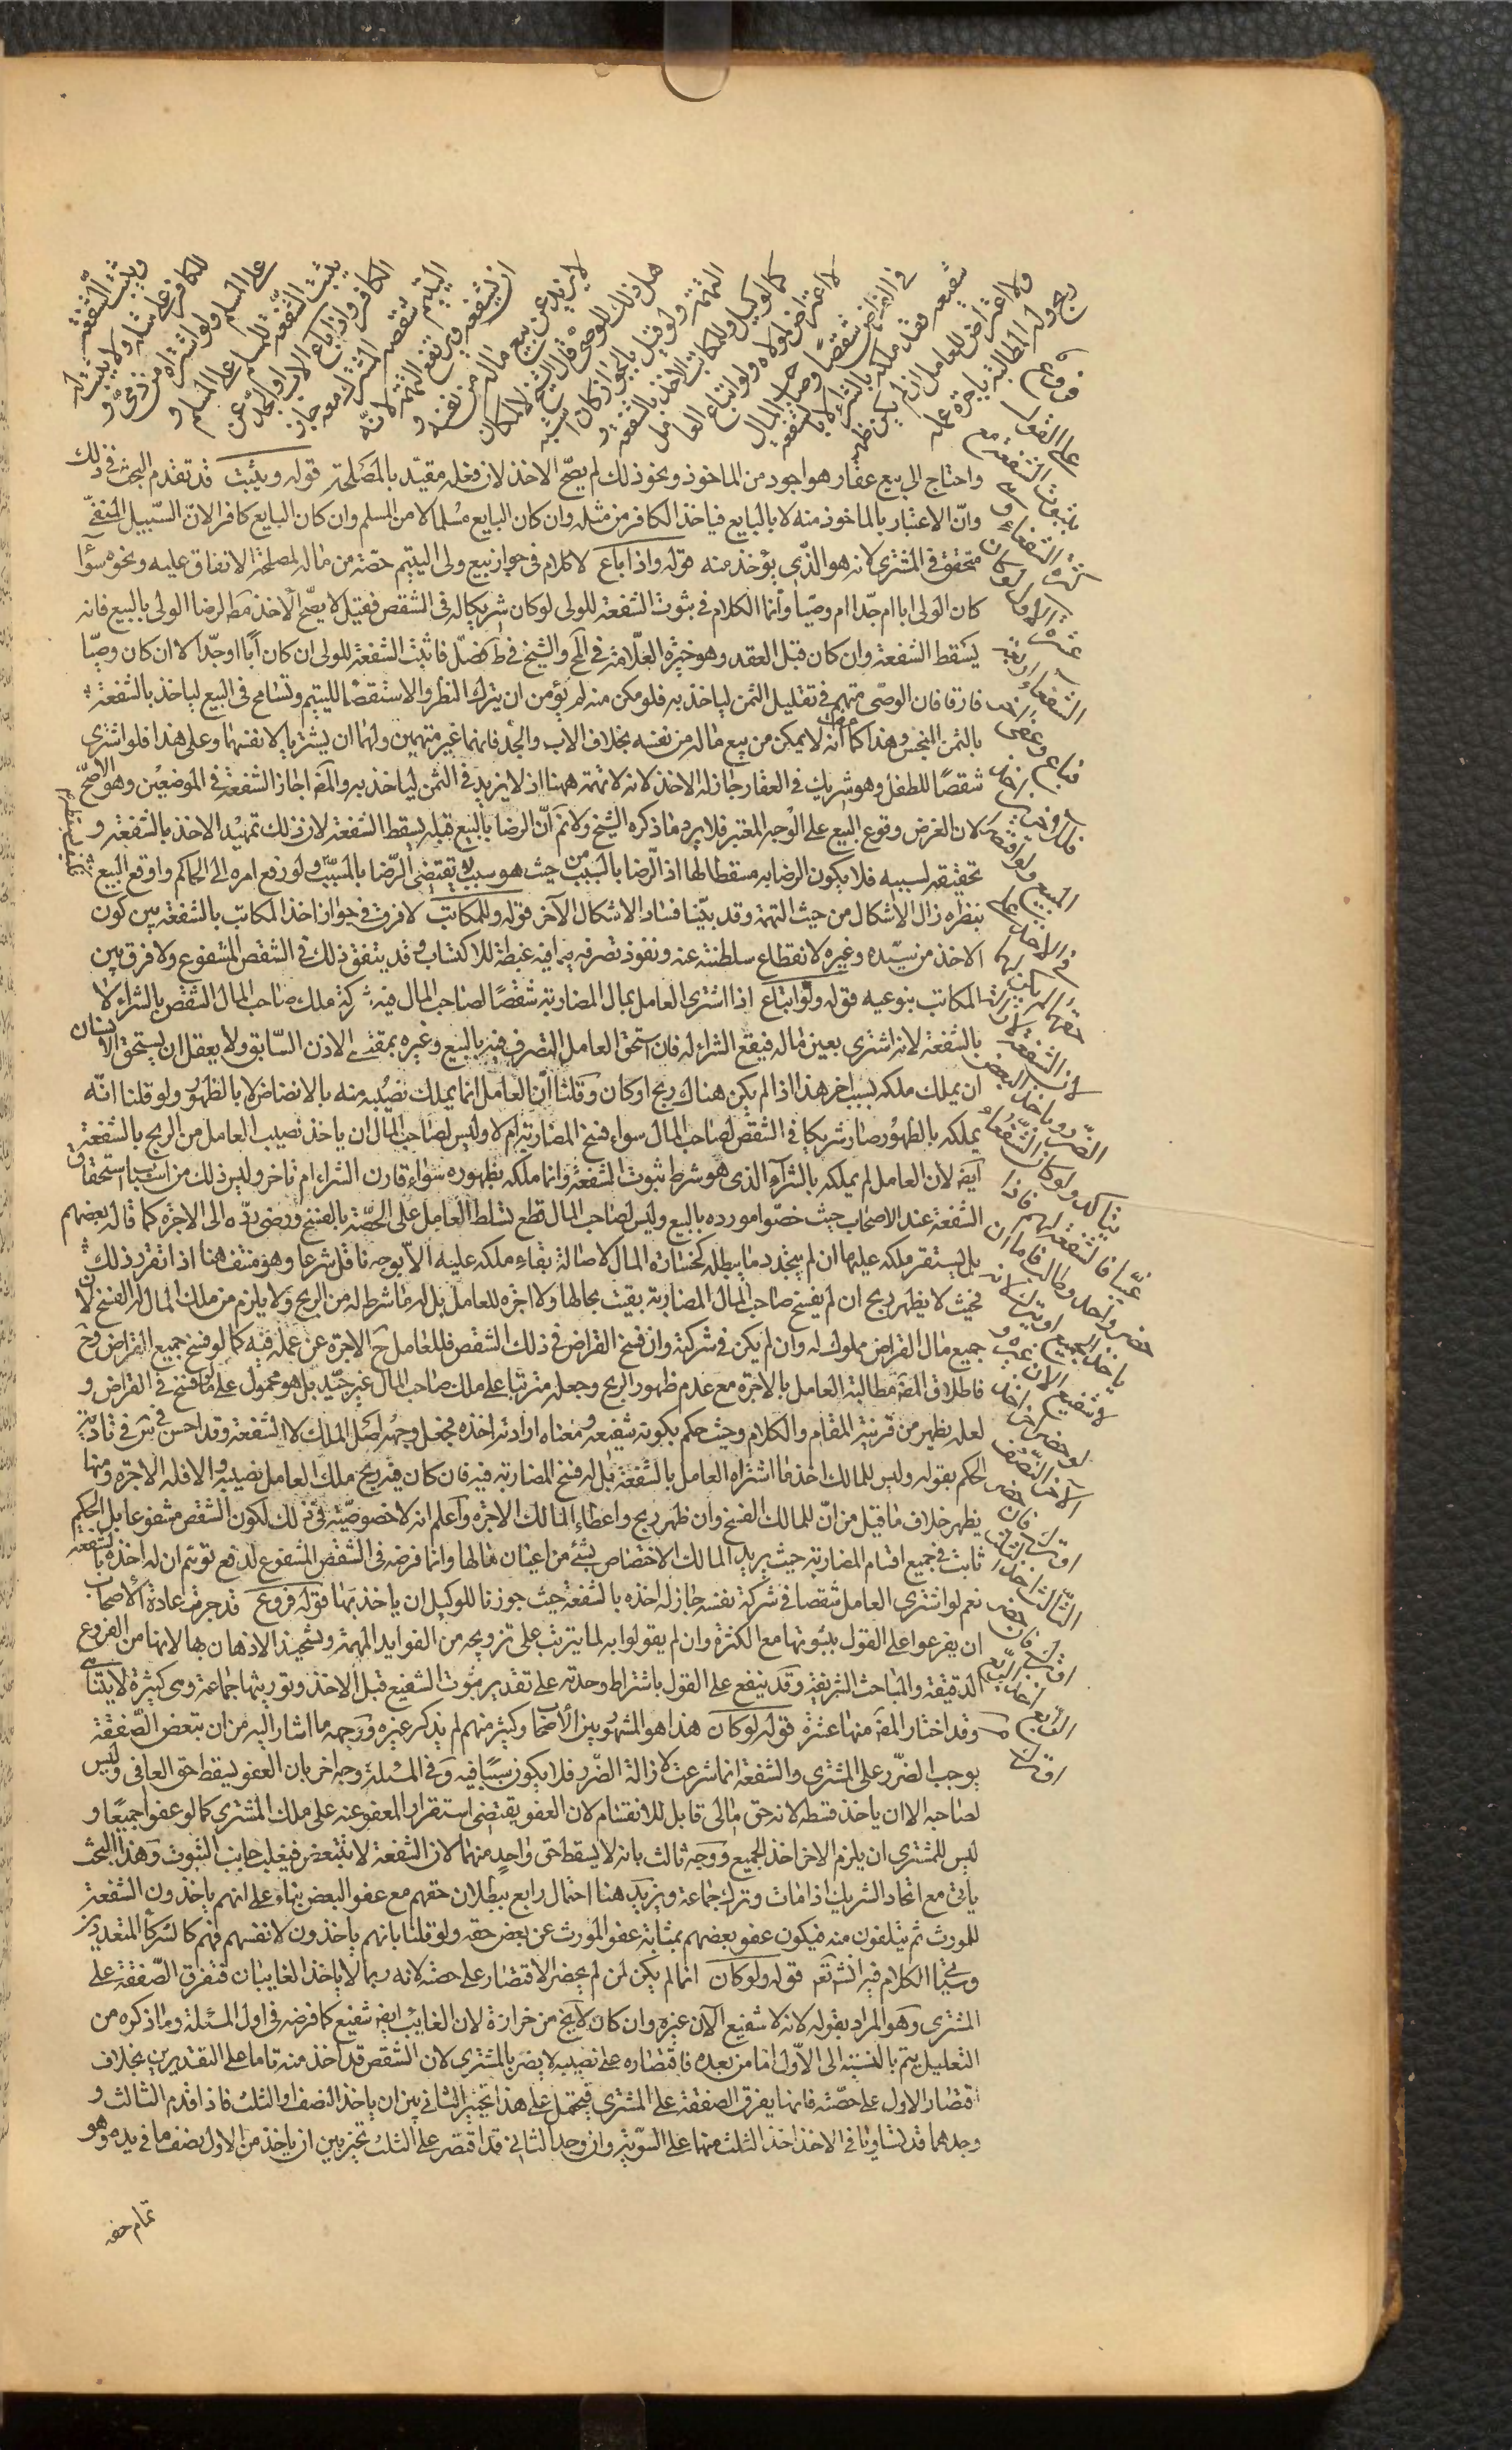 ويثبت الشفعة
للكافر على مثله ولا يثبت له
على المسلم ولو اشتراه من ذمي و
يثبت الشفعة للمسلم على المسلم و
الكافر واذا باع الاب او الجد عن
اليتيم شقصه المشترك معه جاز
ان يشفعه ويرتفع التهمة لانه
لا يزيد عن بيع ماله من نفسه و
هل ذلك للوصي قال الشيخ لا لمكان
التهمة ولو قيل بالجواز كان اشبه
كالوكيل وللمكاتب الاخذ بالشفعة و
لا اعتراض لمولاه ولو ابتاع العامل
في القراض شقصا وصاحب المال
شفيعه فقد ملكه بالشراء لا بالشفعة
ولا اعتراض للعامل ان لم يكن ظهر
ربح وله المطالبة باجرة عمله
فروع
على القول
بثبوت الشفعة مع
كثرة الشفعاء و
عشرة الاول لو كان
الشفعاء اربعة
فباع احدهم وعفى
فللآخرين اخذ
المبيع ولو اقتصر
في الاخذ على
حقهما لم يكن لهما
لان الشفعة لازالة
الضرر وباخذ البعض
يتاكد ولو كان الشفعاء
غيبا فالشفعة لهم فاذا
حضر واحد وطالب فاما ان
ياخذ الجميع او يترك لانه
لا شفيع الان غيره و
لو حضر اخر اخذ من
الاخر النصف
او ترك فان حضر
الثالث اخذ الثلث
او ترك فان حضر
الرابع اخذ الربع
او ترك
واحتاج الى بيع عقار هو اجود من الماخوذ ونحو ذلك لم يصح الاخذ لان فعله مقيد بالمصلحة قوله ويثبت قد تقدم البحث في ذلك
وان الاعتبار بالماخوذ منه لا بالبايع فياخذ الكافر من مثله وان كان البايع مسلما لا من المسلم وان كان البايع كافرا لان السبيل المنفي
متحقق في المشتري لانه هو الذي يؤخذ منه قوله واذا باع لا كلام في جواز بيع ولي اليتيم حصة من ماله لمصلحة الانفاق عليه ونحوه سواء
كان الولي ابا ام جدا ام وصيا وانما الكلام في ثبوت الشفعة للولي لو كان شريكا له في الشقص فقيل لا يصح الاخذ مط لرضا الولي بالبيع فانه
يسقط الشفعة وان كان قبل العقد وهو خيرة العلامة في المخ والشيخ في ط فصل فاثبت الشفعة للولي ان كان ابا او جدا لا ان كان وصيا
فارقا فان الوصي متهم في تقليل الثمن لياخذ به فلو مكن منه لم يؤمن ان يترك النظر والاستقصا لليتيم وتسامح في البيع لياخذ بالشفعة
بالثمن البخس وهذا كما انه لا يمكن من بيع ماله من نفسه بخلاف الاب والجد فانهما غير متهمين ولهما ان يشتريا لانفسهما وعلى هذا فلو اشترى
شقصا للطفل وهو شريك في العقار جاز له الاخذ لانه لا تهمة ههنا اذ لا يزيد في الثمن لياخذ به والمص اجاز الشفعة في الموضعين وهو الاصح
لان الغرض وقوع البيع على الوجه المعتبر فلا يرد ما ذكره الشيخ ولا نم ان الرضا بالبيع قبله يسقط الشفعة لان ذلك تمهيد الاخذ بالشفعة و
تحقيق لسببه فلا يكون الرضا به مسقطا لها اذ الرضا بالسبب من حيث هو سبب يقتضي الرضا بالمسبب ولو رفع امره الى الحاكم واوقع البيع
بنظره زال الاشكال من حيث التهمة وقد بينا فساد الاشكال الآخر قوله وللمكاتب لا فرق في جواز اخذ المكاتب بالشفعة بين كون
الاخذ من سيده وغيره لانقطاع سلطنته عنه ونفوذ تصرفه فيما فيه غبطة للاكتساب وقد يتفق ذلك في الشقص المشفوع ولا فرق بين
المكاتب بنوعيه قوله ولو ابتاع اذا اشترى العامل بمال المضاربة شقصا لصاحب المال فيه شركة ملك صاحب المال الشقص بالشراء لا
بالشفعة لانه اشترى بعين ماله فيقع الشراء له فان استحق العامل التصرف فيه بالبيع وغيره بمقتضى الاذن السابق ولا يعقل ان يستحق الانسان
ان يملك ملكه بسبب اخر هذا اذا لم يكن هناك ربح او كان وقلنا ان العامل انما يملك نصيبه منه بالانضاض لا بالظهور ولو قلنا انه
يملكه بالظهور صار شريكا في الشقص لصاحب المال سواء فسخ المضاربة ام لا وليس لصاحب المال ان ياخذ نصيب العامل من الربح بالشفعة
ايضا لان العامل لم يملكه بالشراء الذي هو شرط ثبوت الشفعة وانما ملكه بظهوره سواء قارن الشراء ام تاخر وليس ذلك من اسباب استحقاق
الشفعة عند الاصحاب حيث خصوا مورده بالبيع وليس لصاحب المال قطع تسلط العامل على الحصة بالفسخ ورضى برده الى الاجرة كما قاله بعضهم
بل يستقر ملكه عليها ان لم يتجدد ما يبطله كخسارة المال لاصالة بقاء ملكه عليه الا بوجه ناقل شرعا وهو منتف هنا اذا تقرر ذلك
فحيث لا يظهر ربح ان لم يفسخ صاحب المال المضاربة بقيت بحالها ولا اجرة للعامل بل له ما شرط له من الربح ولا يلزم من ملك المال له الفسخ لان
جميع مال القراض مملوك له وان لم يكن في شركة وان فسخ القراض في ذلك الشقص فللعامل ح الاجرة عن عمله فيه كما لو فسخ جميع القراض وح
فاطلاق المص مطالبة العامل بالاجرة مع عدم ظهور الربح وجعله مترتبا على ملك صاحب المال غير جيد بل هو محمول على ما لو فسخ في القراض و
لعله يظهر من قرينة المقام والكلام وحيث حكم بكونه شفيعه ومعناه ارادته اخذه فجعل وجهه اصل الملك لا الشفعة وقد احسن في ش في تادية
الحكم بقوله وليس للمالك اخذ ما اشتراه العامل بالشفعة بل له فسخ المضاربة فيه فان كان فيه ربح ملك العامل نصيبه والا فله الاجرة ومنها
يظهر خلاف ما قيل من ان للمالك الفسخ وان ظهر ربح واعطاء المالك الاجرة واعلم انه لا خصوصية في ذلك لكون الشقص مشفوعا بل الحكم
ثابت في جميع اقسام المضاربة حيث يريد المالك الاختصاص بشئ من اعيان مالها وانما فرضه في الشقص المشفوع لدفع توهم ان له اخذه بالشفعة
نعم لو اشترى العامل شقصا في شركة نفسه جاز له اخذه بالشفعة حيث جوزنا للوكيل ان ياخذ بها قوله فروع قد جرت عادة الاصحاب
ان يفرعوا على القول بثبوتها مع الكثرة وان لم يقولوا به لما يترتب على ترويجه من الفوايد المهمة وتشحيذ الاذهان بها لانها من الفروع
الدقيقة والمباحث الشريفة وقد ينفع على القول باشتراط وحدته على تقدير موت الشفيع قبل الاخذ وتوريثها جماعة وهي كثيرة لا يتناهى
وقد اختار المص منها عشرة قوله لو كان هذا هو المشهور بين الاصحاب وكثير منهم لم يذكر غيره ووجهه ما اشار اليه من ان تبعض الصفقة
يوجب الضرر على المشتري والشفعة انما شرعت لازالة الضرر فلا يكون سببا فيه وفي المسئلة وجه اخر بان العفو يسقط حق العافي وليس
لصاحبه الا ان ياخذ قسطه لانه حق مالي قابل للانقسام لان العفو يقتضي استقرار المعفو عنه على ملك المشتري كما لو عفوا جميعا و
ليس للمشتري ان يلزم الاخر اخذ الجميع ووجه ثالث بانه لا يسقط حق واحد منهما لان الشفعة لا تتبعض فيغلب جانب الثبوت وهذا البحث
ياتي مع اتحاد الشريك اذا مات وترك جماعة ويزيد هنا احتمال رابع ببطلان حقهم مع عفو البعض بناء على انهم ياخذون الشفعة
للمورث ثم يتلقون منه فيكون عفو بعضهم بمثابة عفو المورث عن بعض حقه ولو قلنا بانهم ياخذون لانفسهم فهم كالشركاء المتعددين
وسياتي الكلام فيه انش تع قوله ولو كان انما لم يكن لمن لم يحضر الاقتصار على حصته لانه ربما لا ياخذ الغايبان فتفرق الصفقة على
المشتري وهو المراد بقوله لانه لا شفيع الآن غيره وان كان لا يخ من حزازة لان الغايب ايضا شفيع كما فرضه في اول المسئلة وما ذكره من
التعليل يتم بالنسبة الى الاول اما من بعده فاقتصاره على نصيبه لا يضر بالمشتري لان الشقص قد اخذ منه تاما على التقديرين بخلاف
اقتصار الاول على حصته فانها يفرق الصفقة على المشتري فيحتمل على هذا تخيير الثاني بين ان ياخذ النصف او الثلث فاذا قدم الثالث و
وجدهما قد تساويا في الاخذ اخذ الثلث منهما على السوية وان وجد الثاني قد اقتصر على الثلث تخير بين ان ياخذ من الاول نصف ما في يده وهو
تمام حقه